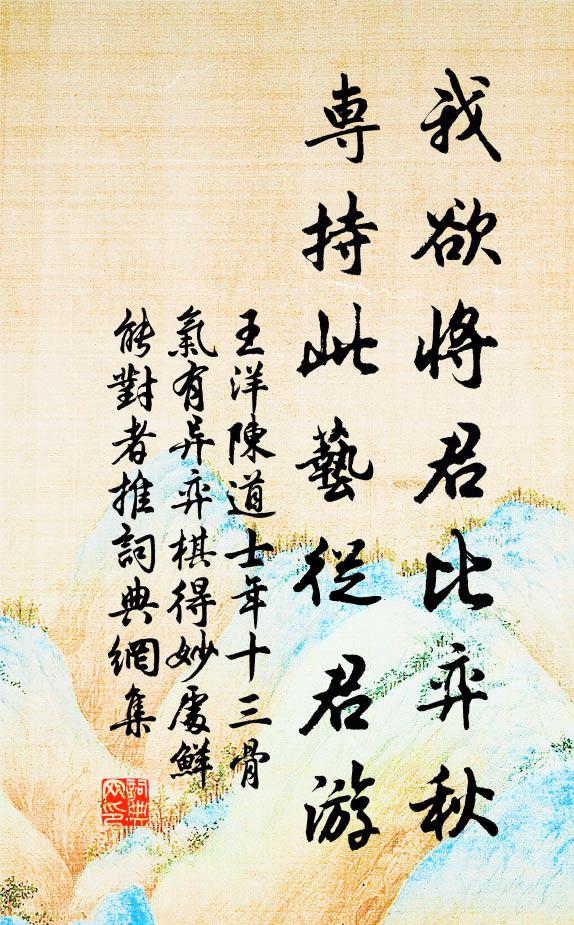 我欲將君比弈秋
專持此藝從君游
王洋陳道士年十三骨
氣有异弈棋得妙處鮮
能對者推詞典網集
詞典
网印